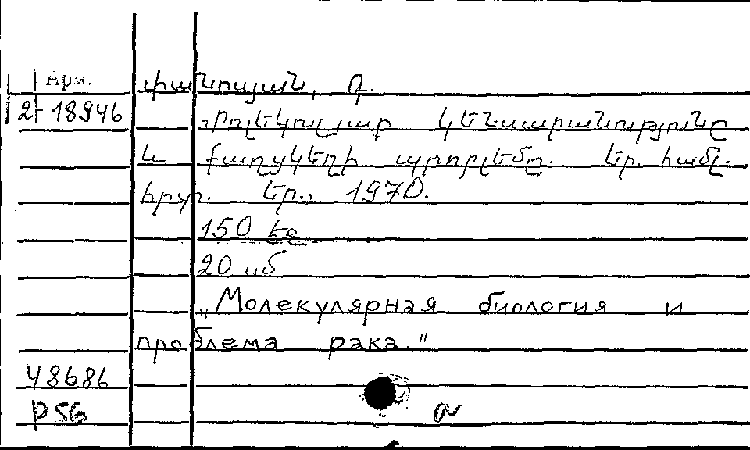 Арм.
Փանոսյան, Դ.
2- 18946
Մոլեկուլյար կենսաբանությունը
և քաղցկեղի պրոբլեմը. Եր. համլ.
հրտ. Եր., 1970.
150 էջ
20 սմ
„Молекулярная биология и
проблема рака."
48686
P 56